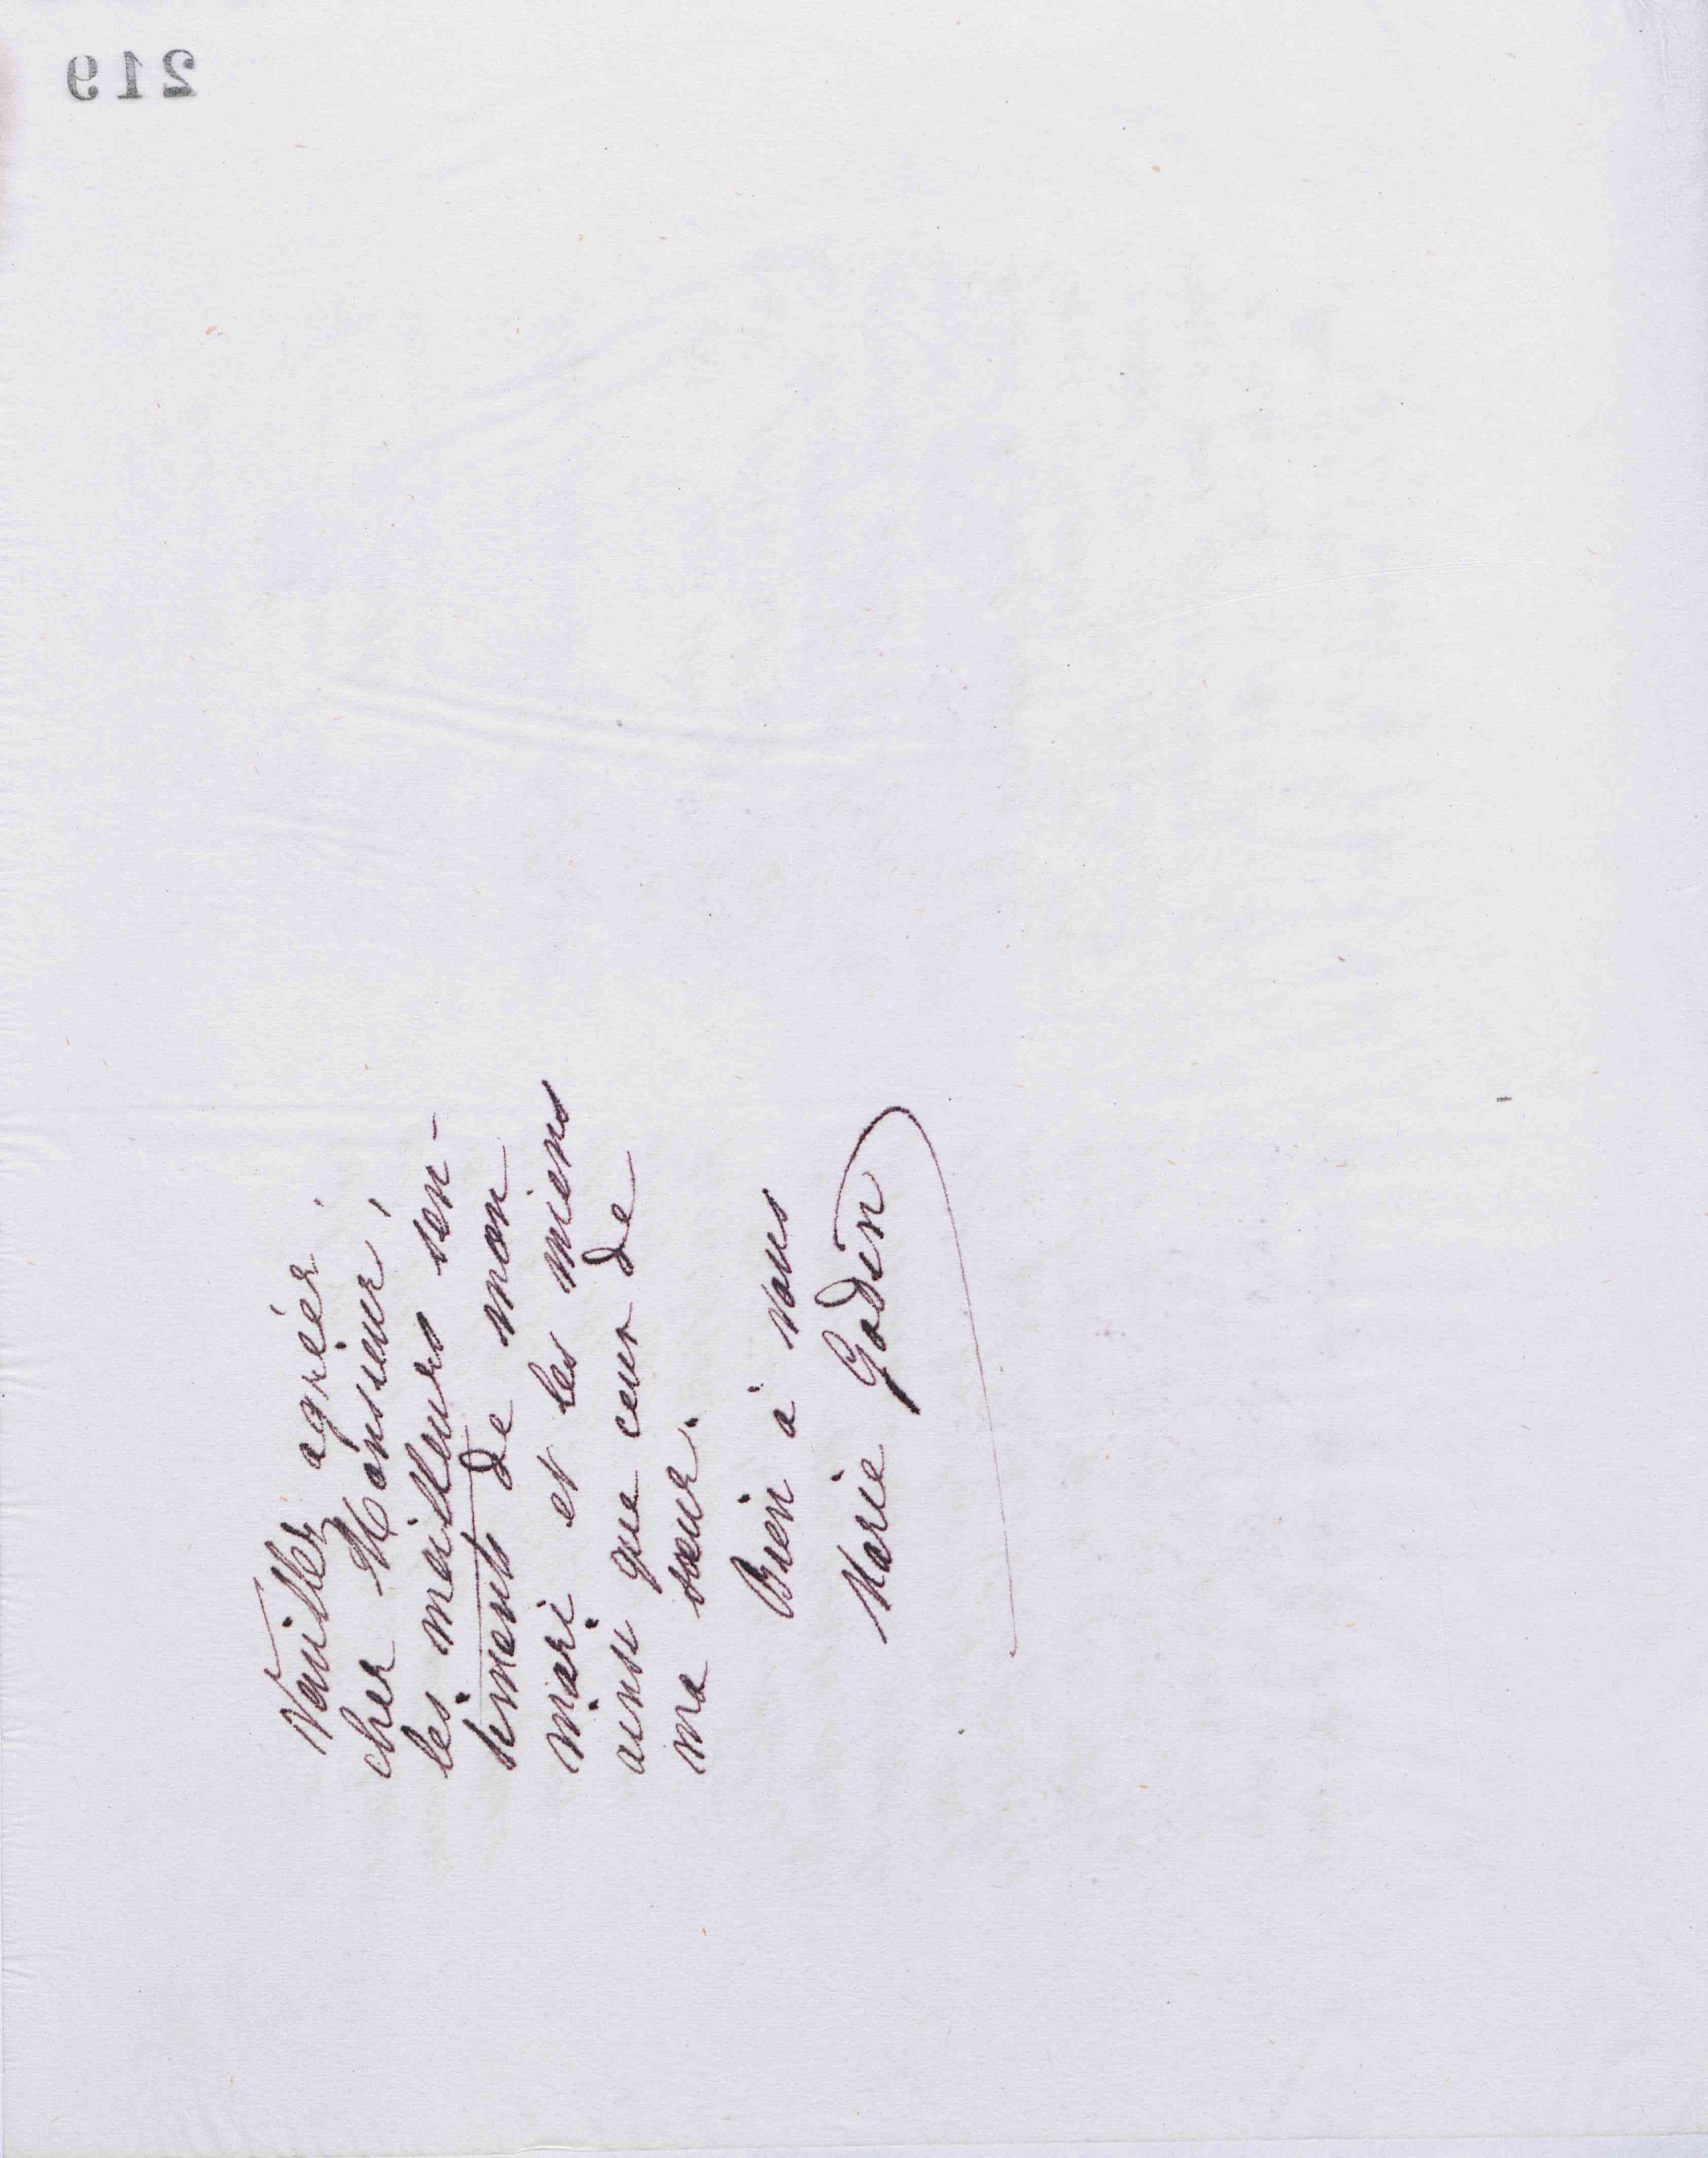 219
Veuillez agréer
cher Monsieur,
les meilleurs sen-
timents de mon
mari et les miens
ainsi que ceux de
ma sœur.
Bien à vous
Marie Godin